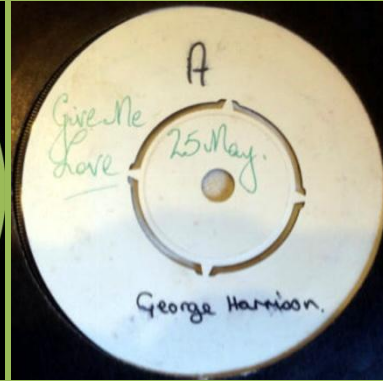 A
Give Me
Love
25 May.
George Harrison.